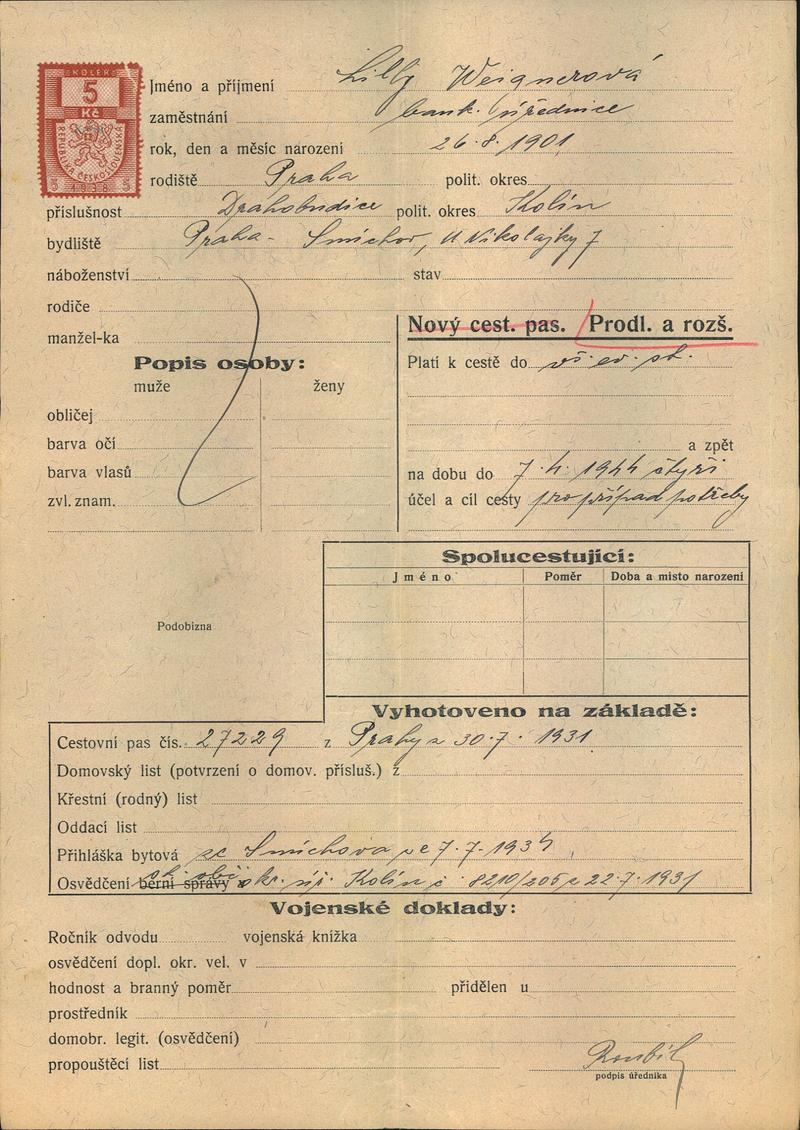 KOLEK
5
Kč
REPUBLIKA ČESKOSLOVENSKÁ
5 1938 5
Jméno a příjmení Lilly Weignerová
zaměstnání bank. úřednice
rok, den a měsíc narození 26.8.1901
rodiště Praha polit. okres
příslušnost Drahobudice polit. okres Kolín
bydliště Praha - Smíchov, U Nikolajky 7
náboženství stav
rodiče
manžel-ka
Nový cest. pas. / Prodl. a rozš.
Popis osoby:
muže ženy
obličej
barva očí
barva vlasů
zvl. znam.
Platí k cestě do vš. ev. st.
a zpět
na dobu do 7.4.1944 čtyři
účel a cíl cesty pro případ potřeby
Spolucestující:
Jméno Poměr Doba a místo narození
Podobizna
Vyhotoveno na základě:
Cestovní pas čís. 27229 z Prahy z 30.7.1931
Domovský list (potvrzení o domov. přísluš.) z
Křestní (rodný) list
Oddací list
Přihláška bytová ze Smíchova ze 7.7.1934
Osvědčení berní správy okr. úř. Kolín č 8210/205 z 22.7.1931
Vojenské doklady:
Ročník odvodu vojenská knížka
osvědčení dopl. okr. vel. v
hodnost a branný poměr přidělen u
prostředník
domobr. legit. (osvědčení)
propouštěcí list
podpis úředníka